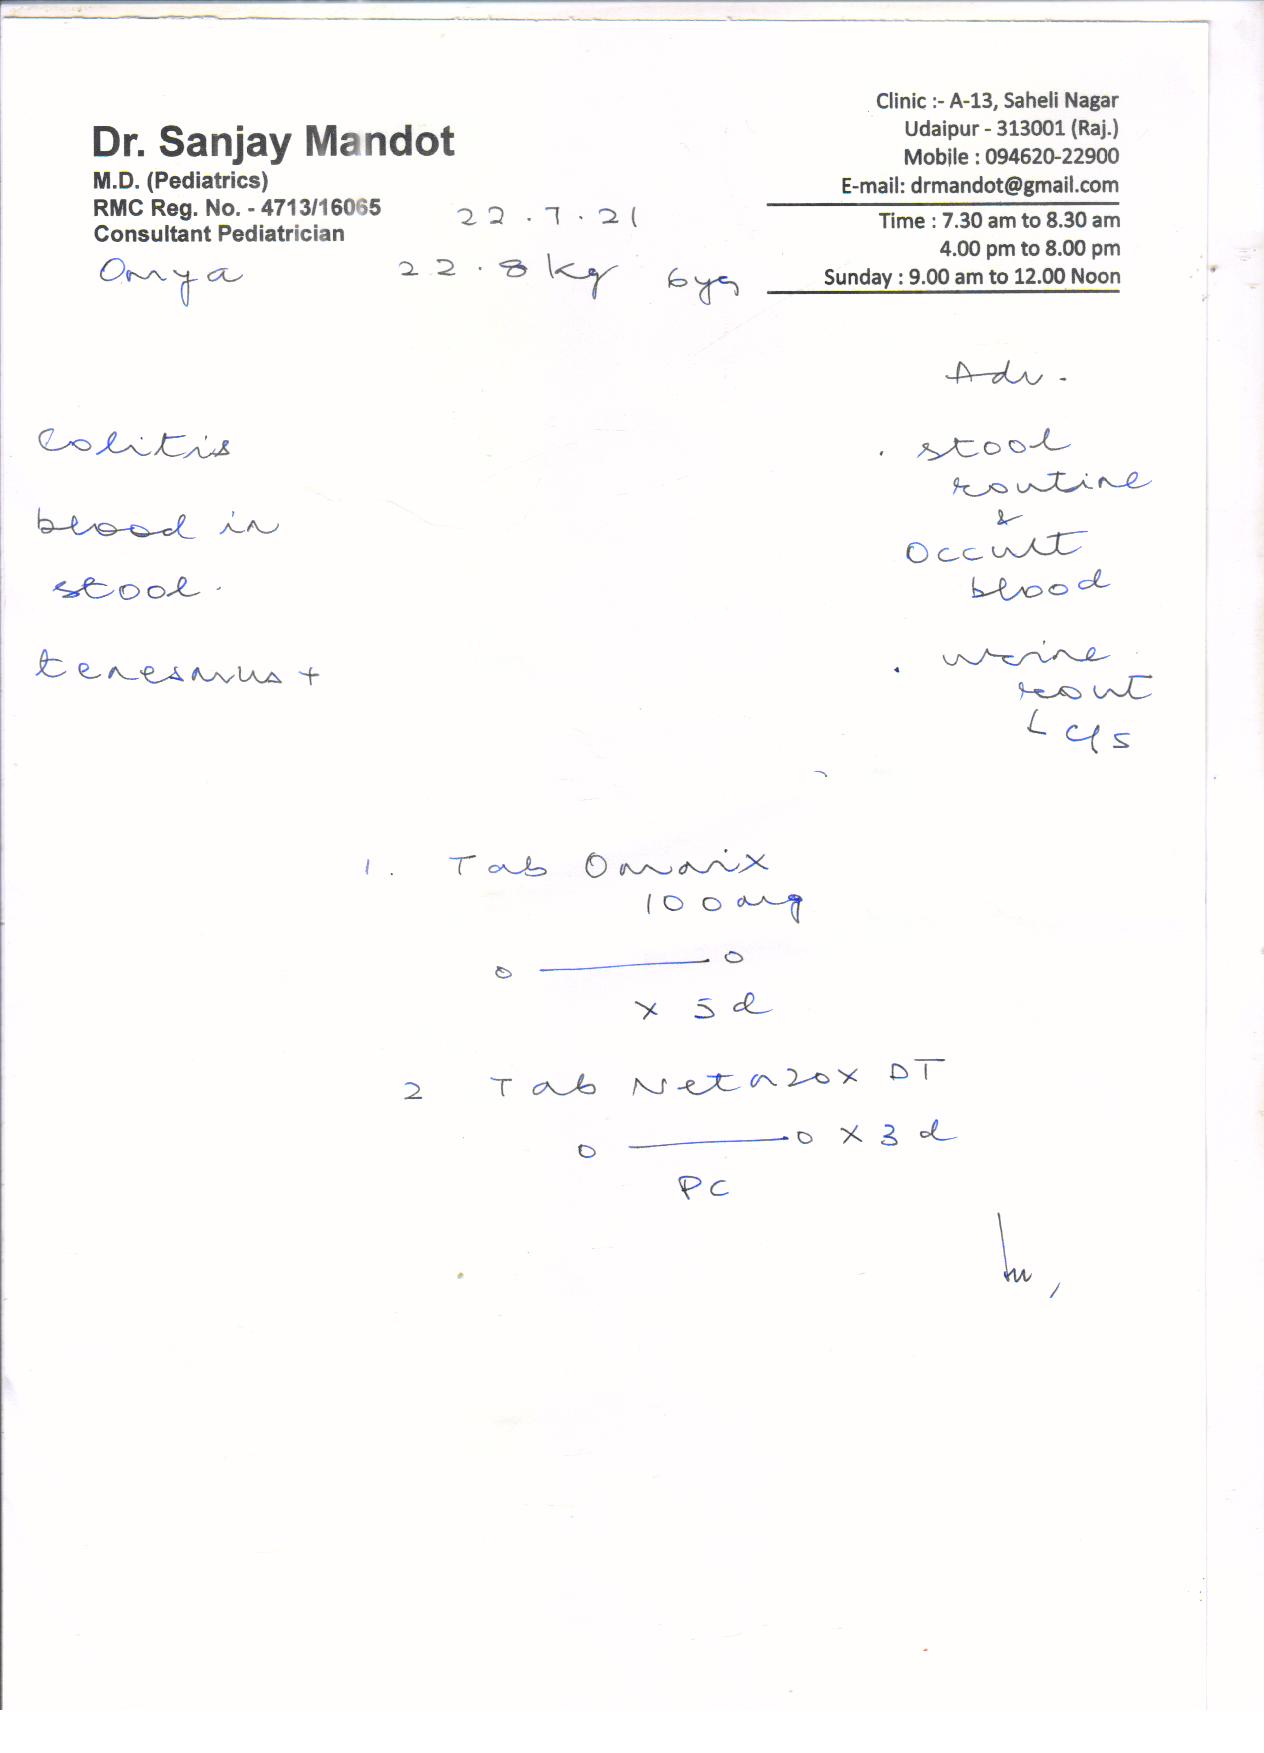 Dr. Sanjay Mandot
M.D. (Pediatrics)
RMC Reg. No. - 4713/16065
Consultant Pediatrician
Clinic :- A-13, Saheli Nagar
Udaipur - 313001 (Raj.)
Mobile : 094620-22900
E-mail: drmandot@gmail.com
Time : 7.30 am to 8.30 am
4.00 pm to 8.00 pm
Sunday : 9.00 am to 12.00 Noon
22.7.21
Omya 22.8 kg 6 yrs
Colitis
blood in
stool.
tenesmus +
Adv.
. stool
routine
&
occult
blood
. urine
rout
C/S
1. Tab Omnix
100 mg
0 — 0
x 5 d
2 Tab Netazox DT
0 — 0 x 3 d
PC